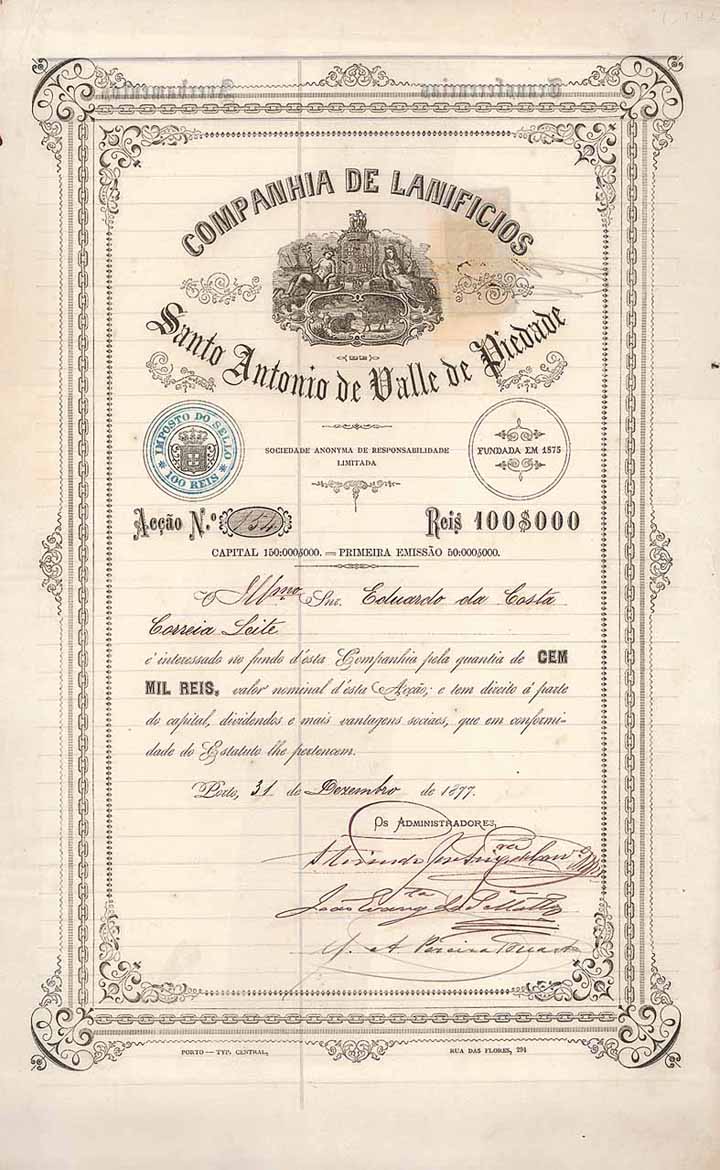 COMPANHIA DE LANIFICIOS
Santo Antonio de Valle de Piedade
IMPOSTO DO SELLO
100 REIS
SOCIEDADE ANONYMA DE RESPONSABILIDADE
LIMITADA
FUNDADA EM 1875
Acção N.º 154 Reis 100$000
CAPITAL 150:000$000. — PRIMEIRA EMISSÃO 50:000$000.
O Illmo Snr. Eduardo da Costa
Correia Leite
é interessado no fundo d'ésta Companhia pela quantia de CEM
MIL REIS, valor nominal d'ésta Acção; e tem direito á parte
do capital, dividendos e mais vantagens sociaes, que em conformi-
dade do Estatuto lhe pertencem.
Porto, 31 de Dezembro de 1877.
OS ADMINISTRADORES,
PORTO — TYP. CENTRAL, RUA DAS FLORES, 294